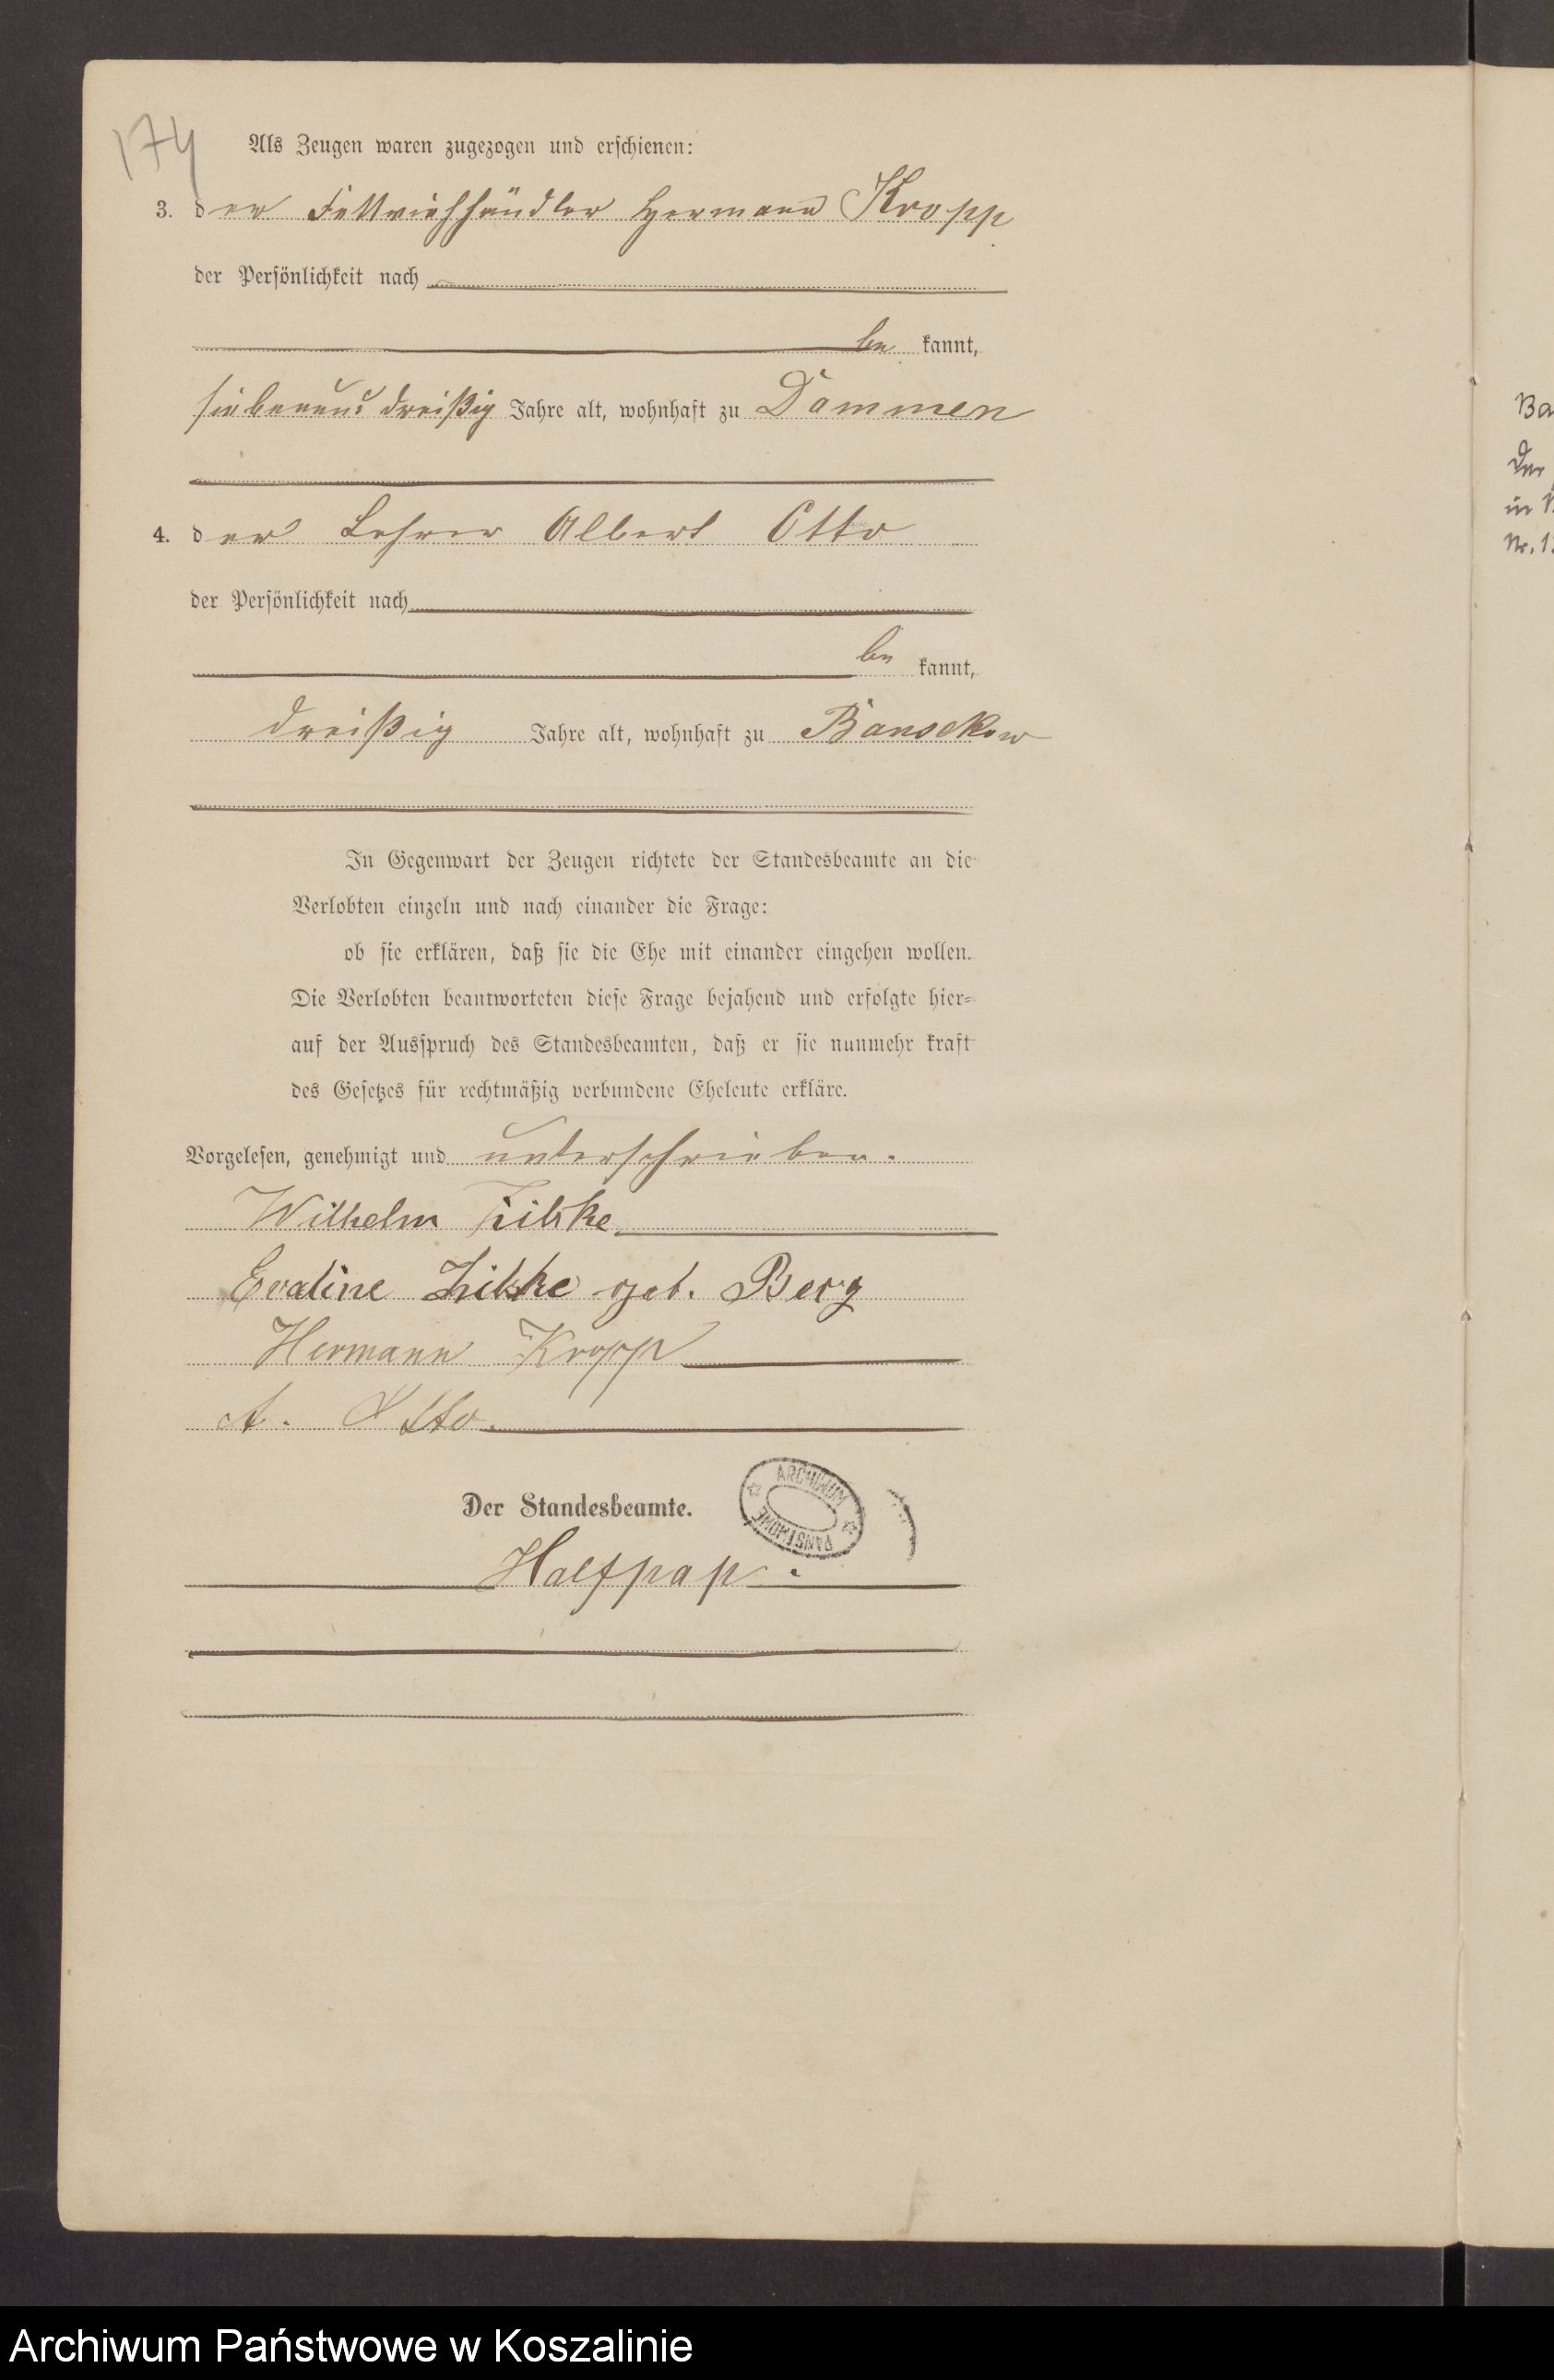 174
Als Zeugen waren zugezogen und erschienen:
3. der Fettviehhändler Hermann Kropp
der Persönlichkeit nach
be kannt,
siebenund dreißig Jahre alt, wohnhaft zu Dammen
4. der Lehrer Albert Otto
der Persönlichkeit nach
be kannt,
dreißig Jahre alt, wohnhaft zu Bansekow
In Gegenwart der Zeugen richtete der Standesbeamte an die
Verlobten einzeln und nach einander die Frage:
ob sie erklären, daß sie die Ehe mit einander eingehen wollen.
Die Verlobten beantworteten diese Frage bejahend und erfolgte hier-
auf der Ausspruch des Standesbeamten, daß er sie nunmehr kraft
des Gesetzes für rechtmäßig verbundene Eheleute erkläre.
Vorgelesen, genehmigt und unterschrieben.
Wilhelm
Evaline geb. Berg
Hermann Kropp
A. Otto.
Der Standesbeamte.
ARCHIWUM PAŃSTWOWE
Halfpap.
Ba
Der
in
Nr. 1
Archiwum Państwowe w Koszalinie